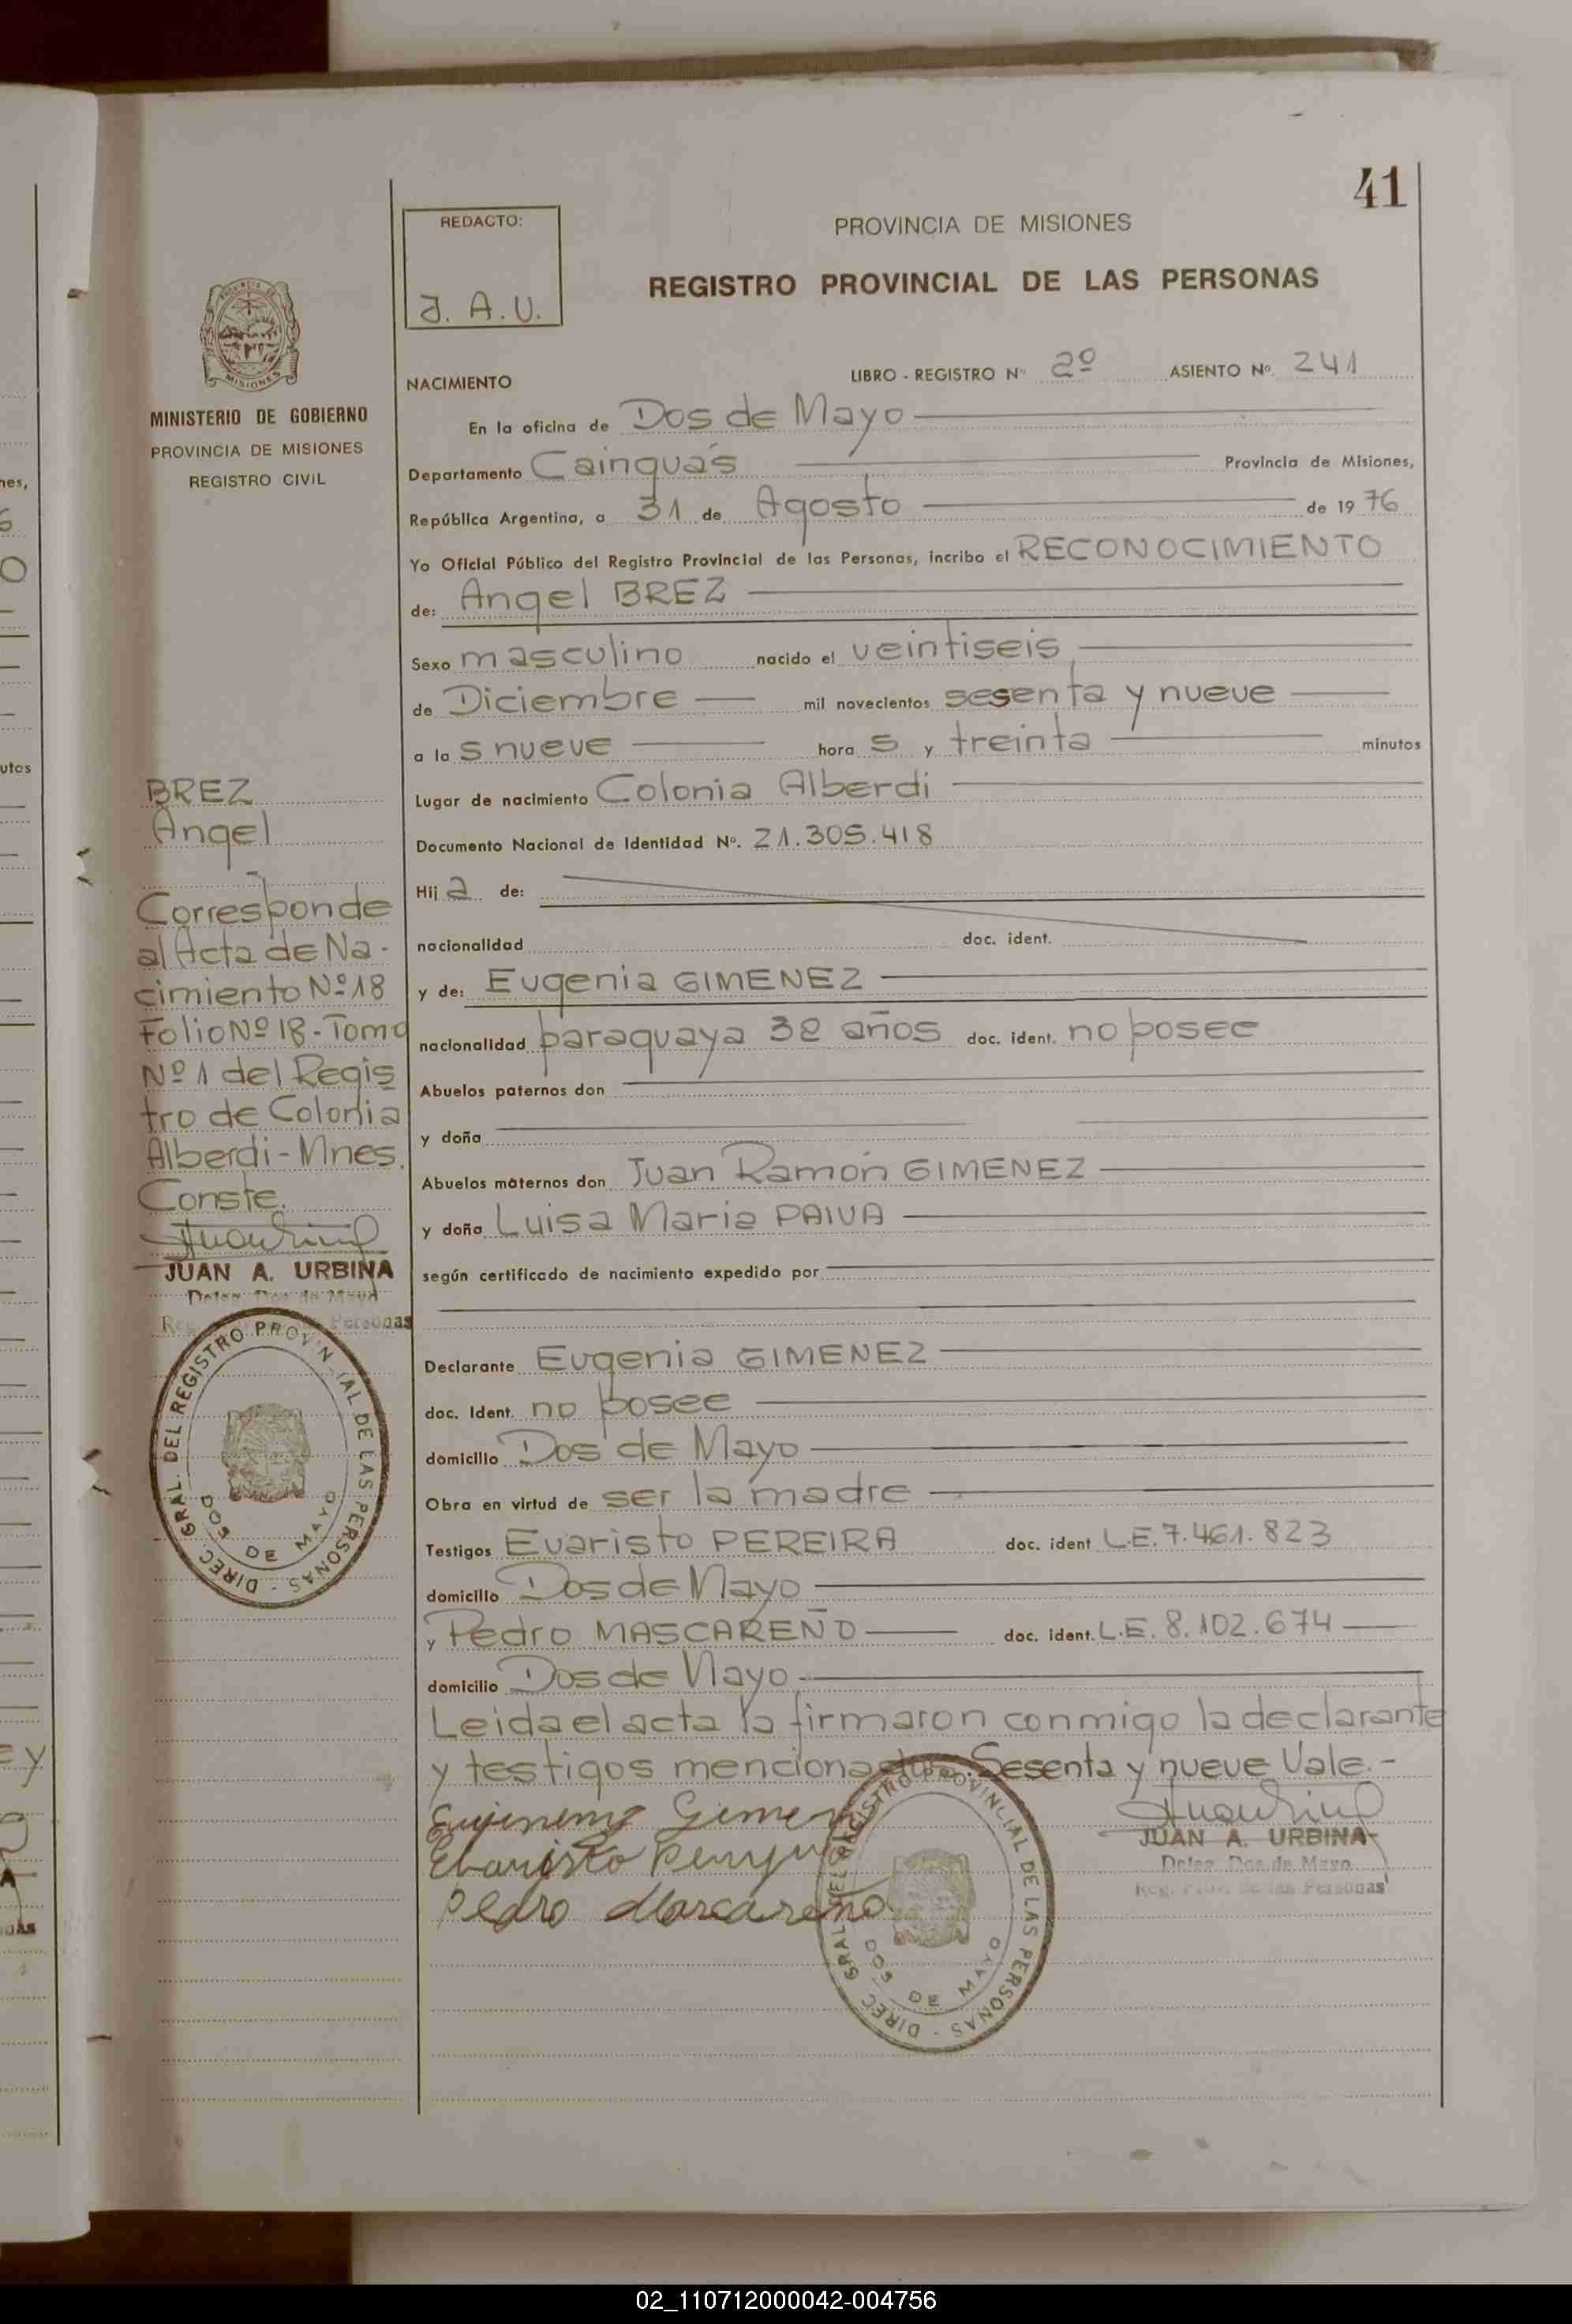 41
REDACTO:
J. A. U.
PROVINCIA DE MISIONES
REGISTRO PROVINCIAL DE LAS PERSONAS
MISIONES
MINISTERIO DE GOBIERNO
PROVINCIA DE MISIONES
REGISTRO CIVIL
NACIMIENTO
LIBRO - REGISTRO Nº 2º ASIENTO Nº. 241
En la oficina de Dos de Mayo
Departamento Cainguás Provincia de Misiones,
República Argentina, a 31 de Agosto de 1976
Yo Oficial Público del Registro Provincial de las Personas, incribo el RECONOCIMIENTO
de: Angel BREZ
Sexo masculino nacido el veintiseis
de Diciembre mil novecientos sesenta y nueve
a las nueve horas y treinta minutos
Lugar de nacimiento Colonia Alberdi
Documento Nacional de Identidad Nº. 21.305.418
Hija de:
nacionalidad doc. ident.
y de: Eugenia GIMENEZ
nacionalidad paraguaya 32 años doc. ident. no posee
Abuelos paternos don
y doña
Abuelos maternos don Juan Ramón GIMENEZ
y doña Luisa María PAIVA
según certificado de nacimiento expedido por
Declarante Eugenia GIMENEZ
doc. Ident. no posee
domicilio Dos de Mayo
Obra en virtud de ser la madre
Testigos Evaristo PEREIRA doc. ident L.E. 7.461.823
domicilio Dos de Mayo
y Pedro MASCAREÑO doc. ident. L.E. 8.102.674
domicilio Dos de Mayo
Leida el acta la firmaron conmigo la declarante
y testigos mencionados. Sesenta y nueve Vale.-
Pedro Mascareño
JUAN A. URBINA
Deleg. Dos de Mayo
Reg. Prov. de las Personas
DIREC GRAL. DEL REGISTRO PROVINCIAL DE LAS PERSONAS -
DOS DE MAYO
BREZ
Angel
Corresponde
al Acta de Na-
cimiento Nº 18
Folio Nº 18 - Tomo
Nº 1 del Regis
tro de Colonia
Alberdi - Mnes.
Conste.
JUAN A. URBINA
Deleg. Dos de Mayo
Reg. Personas
DIREC GRAL. DEL REGISTRO PROVINCIAL DE LAS PERSONAS -
DOS DE MAYO
02_110712000042-004756